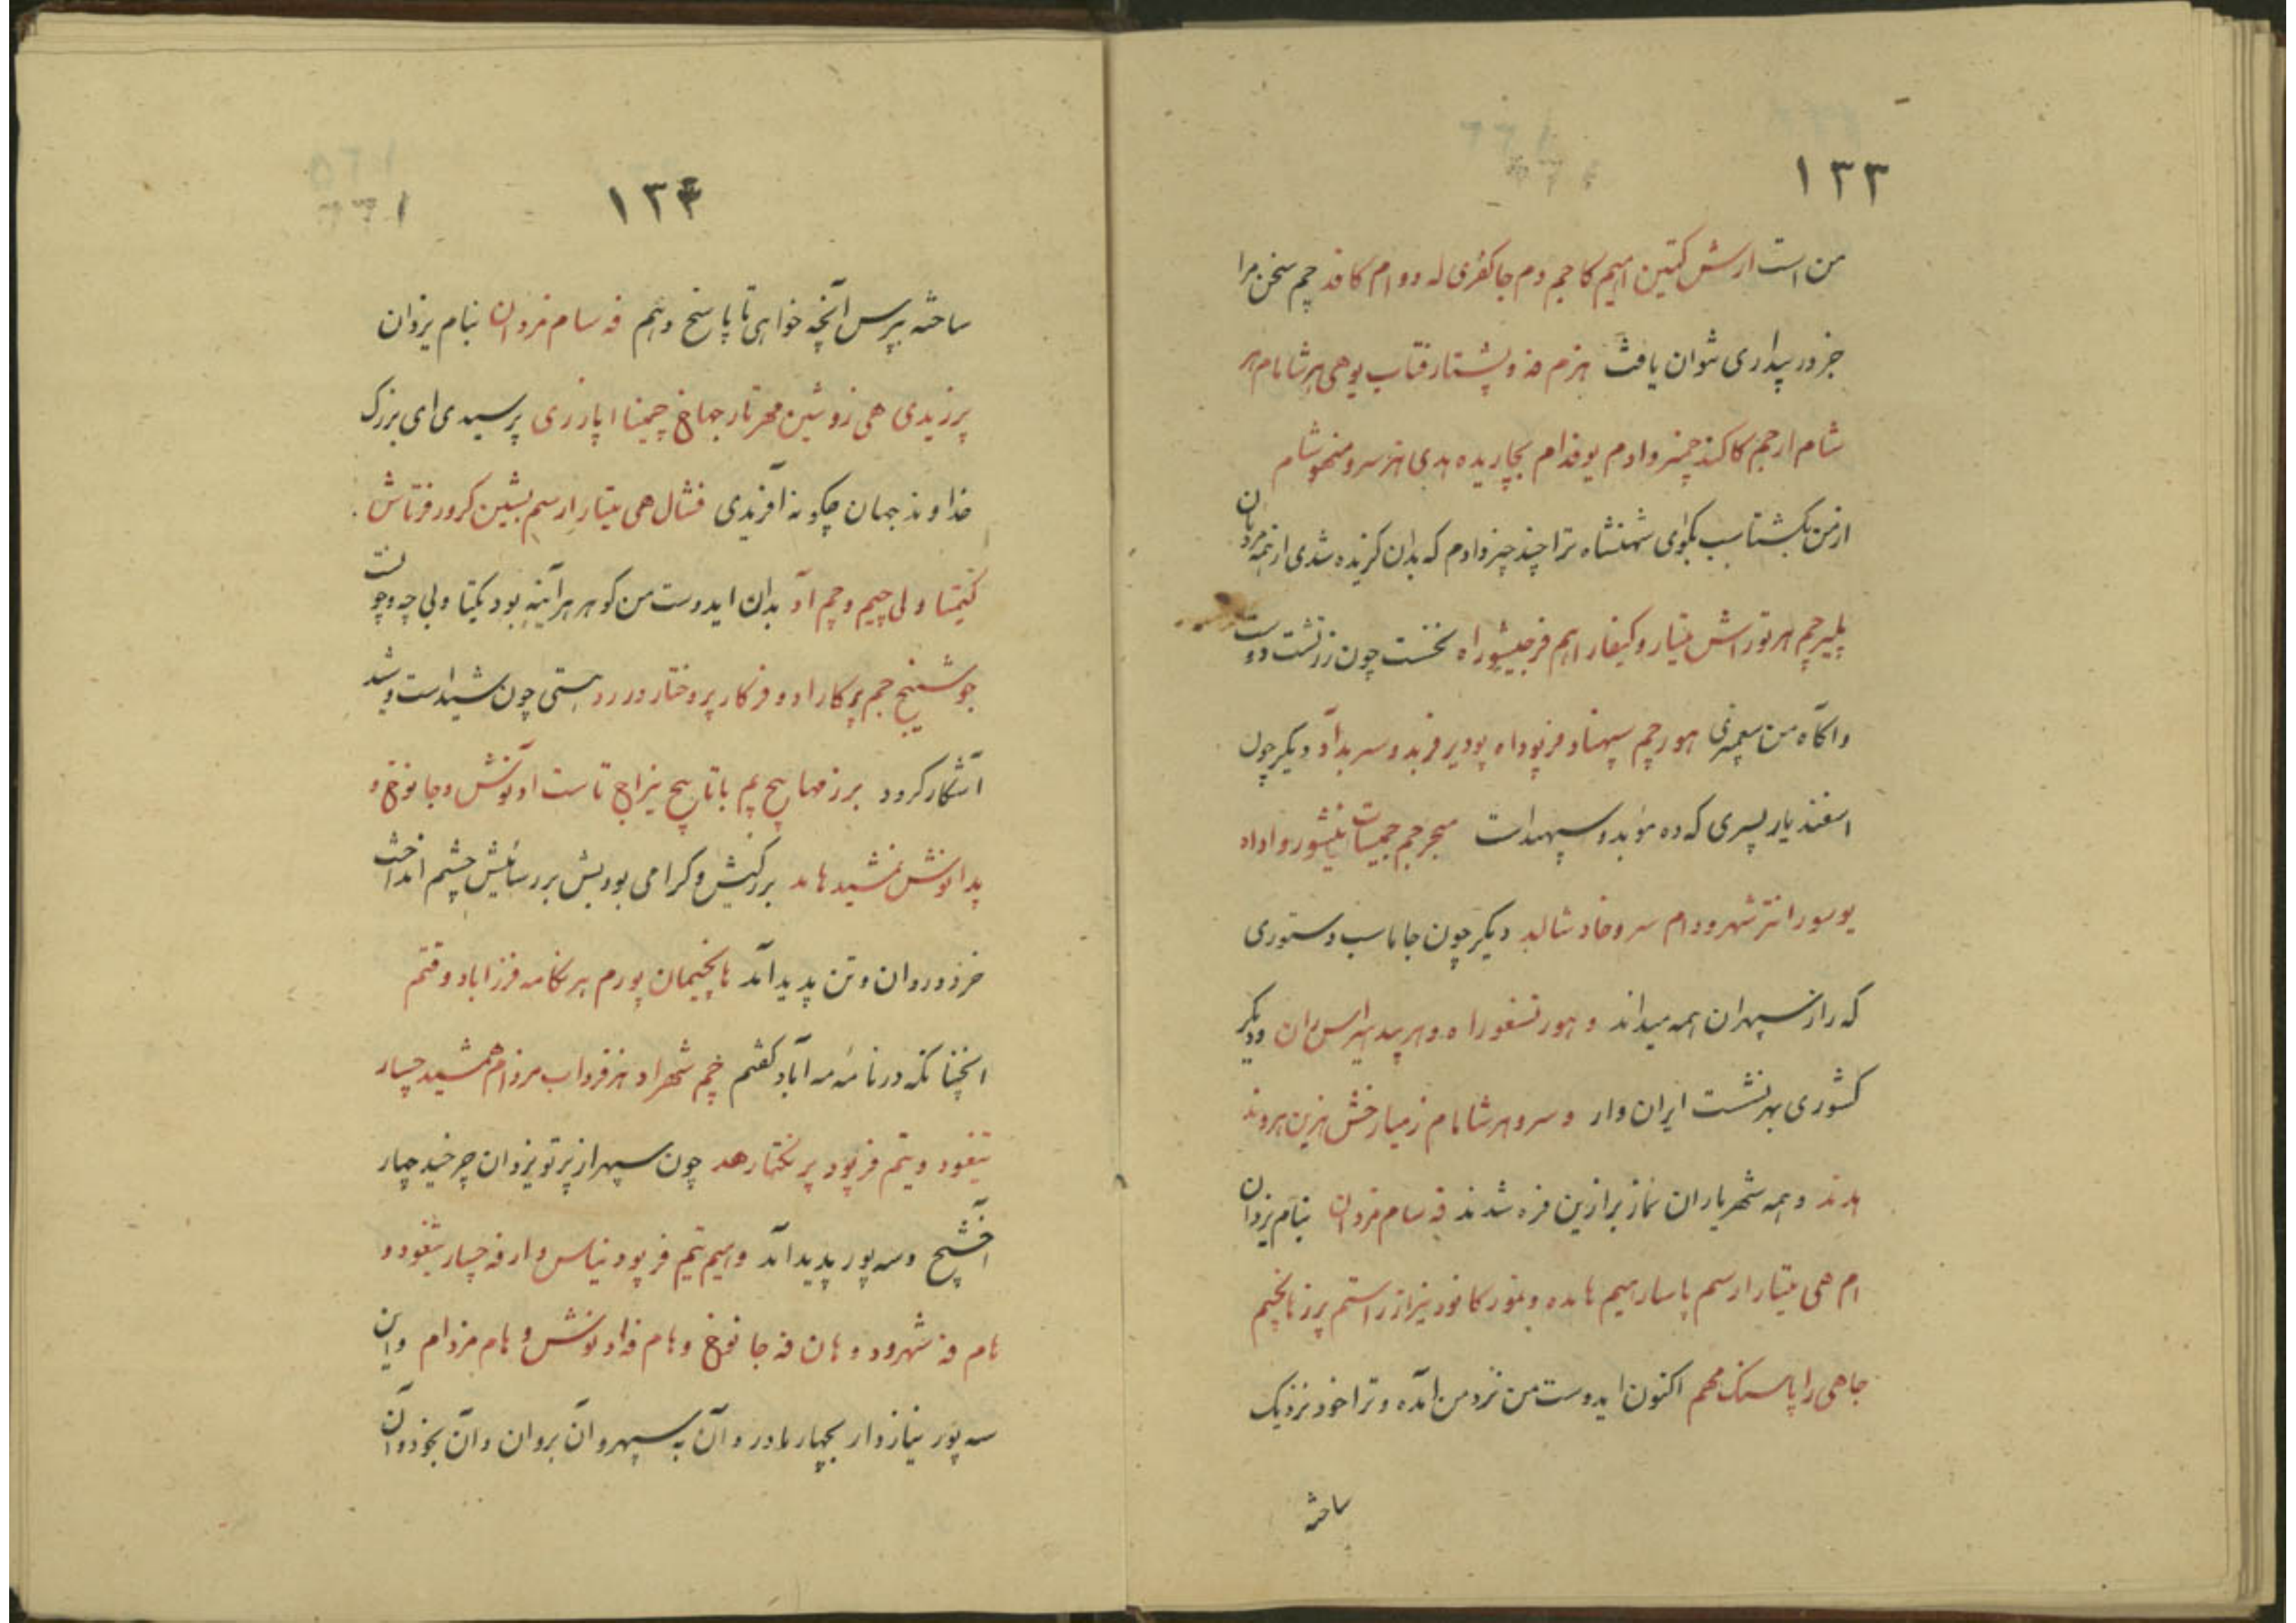 ۱۳۳
من است ارش کتین امیم کا جم دم جا کفری له دو ام کا فد چم سخن مرا
جز در پیداری نتوان یافت هزم فه و پشتار فتاب یو هی هر شامام هر
شام ار جم کا کند چمنر وادم یو فدام بجاریده بدی هز سرو منهوشام
از من بکشتاسب بکوی شهنشاه ترا چند چیز دادم که بدان کزیده شدی از همه مردمان
پلیر چم هر تورا ش متیار و کیفار اهم فرجیشوراه نخست چون زرتشت دوست
و اکاه من پیغمبری هور چم سپهناد فرپوداه پودیر فربد و سر بدآد دیکر چون
اسفندیار پسری که ده موبد و سپهبد است
یو سور انتر شهرودام سروخاد شالبد دیکر چون جاماسب دستوری
که راز سپهران همه میداند و هور تسفوراه و هر پید هیراس مان و دیکر
کشوری بهر نشست ایران وار و سرو هر شامام زمیار خش هزین هروند
بدند و همه شهریاران نماز بر ازین فره شدند فه سام مزدان بنام یزدان
ام هی متیار ارسم پاسار میم هامده و تمور کا فود نیراز راستم پرز هانچیم
جاهی را پاسنک مهم اکنون ایدوست من نزد من آمده و ترا خود نزدیک
ساخته
۱۳۴
ساخته بپرس آنچه خواهی تا پاسخ دهم فه سام مزدان بنام یزدان
پرزیدی هی زوشین مهر تار جهاخ چمینا اپارزی پرسیدی ای بزرک
خداوند جهان چکونه آفریدی فشال هی متیار ارسم بشین کرور فرتاش
کیتمتا ولی چیم و چم آد بدان ایدوست من کوهر هر آینه بود یکتا ولی چه و چونست
جو شینخ جم پرکار اد و فرکار پروختار ور رد هستی چون شید است و شد
آشکار کرود برزمها هیچ یم باتا هیچ نیراخ تاست او نوش و جانوخ و
پدا نوش نمشید هامد بر کنیش و کرامی بودیش بر رسائیش چشم انداخت
خرد و روان و تن پدید آمد هانچیمان پورم هر نکامه فرزاباد وفتم
انچنانکه در نامه مه آباد کفتم چم شهراد هز فرداب مزدام همشید چسار
تیغود و یتم فرپود پر نختار هد چون سپهر از پرتو یزدان چرخید چهار
آخشیج و سه پور پدید آمد و امیم تیم فرپود نیاس وار فه چسار تیغود و
هام فه شهرود و هان فه جانوخ و هام فه اد نوش و هام مزدام و این
سه پور نیاز دار بچهار مادر و آن به سپهر و آن بروان و آن بخرد و آن